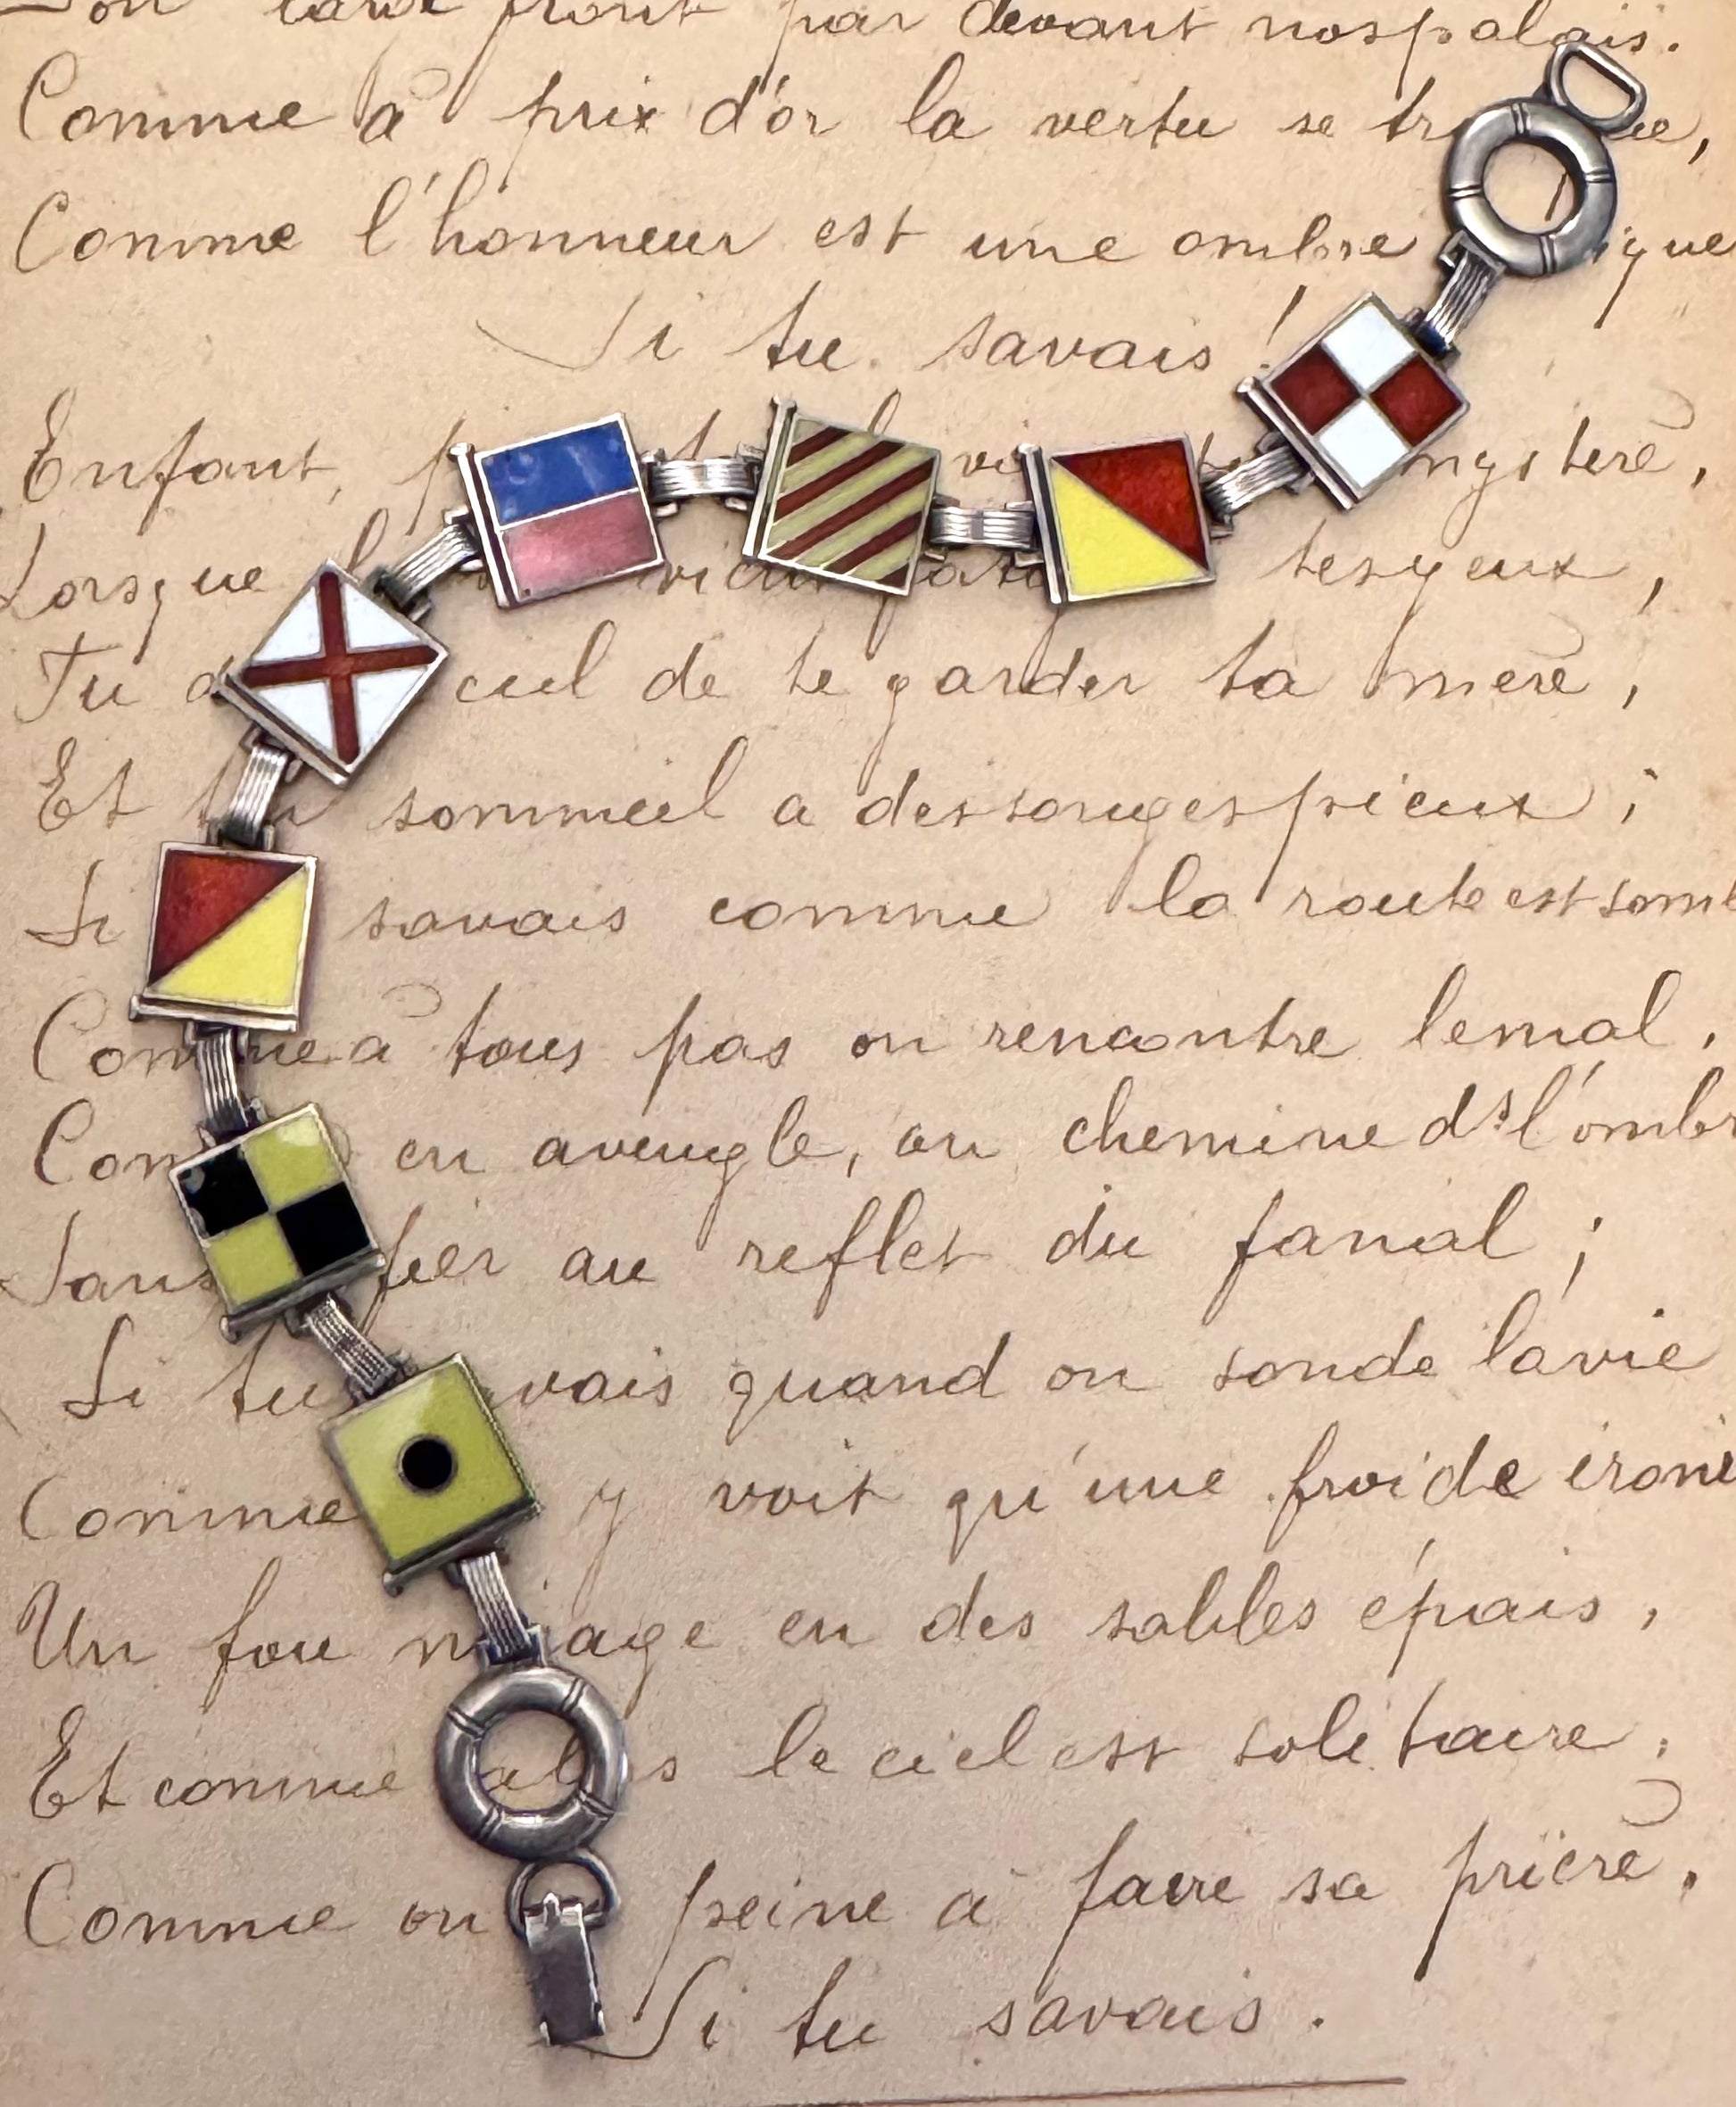 front par devant nos palais.
Comme à prix d'or la vertu se
Comme l'honneur est une ombre
Si tu savais !
Enfant, mystère,
Lorsque tes yeux,
Tu de te garder ta mère,
Et sommeil a des songes pieux ;
Si savais comme la route est
Comme à tous pas on rencontre le mal.
en aveugle, on chemine ds l'
Sans au reflet du fanal ;
Si tu quand on sonde la vie
Comme y voit qu'une froide
Un fou en des sables épais,
Et comme le ciel est solitaire ;
Comme on peine à faire sa prière,
Si tu savais.